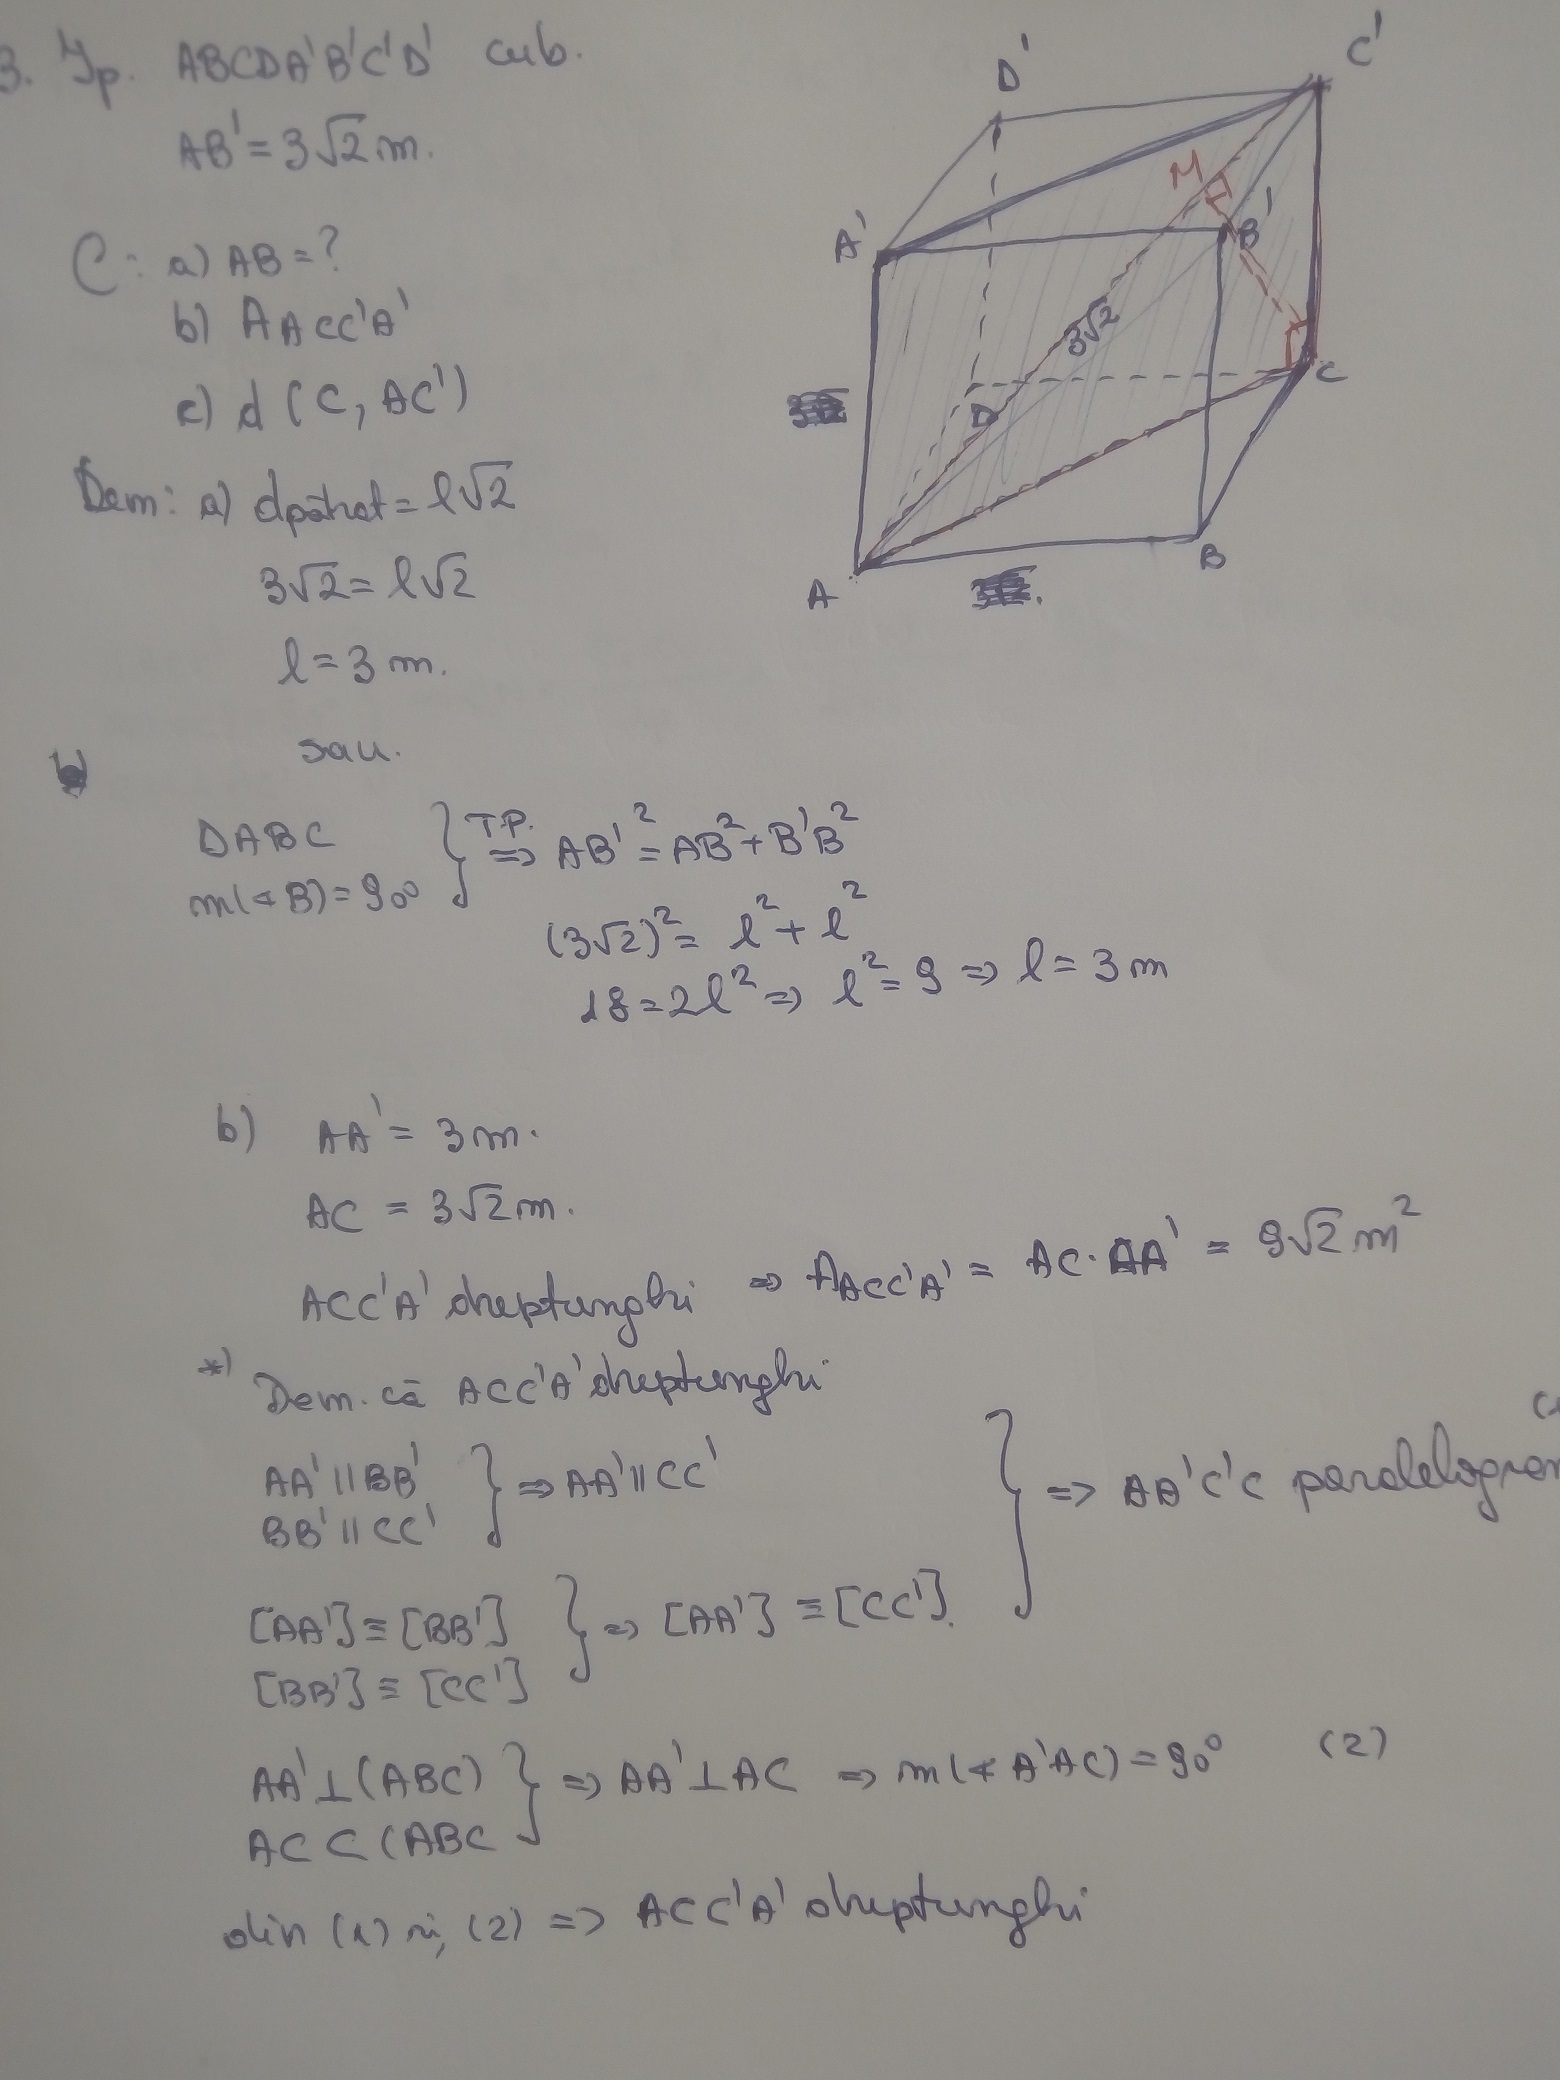 3. Ip. ABCDA'B'C'D' cub.
AB' = 3√2 m.
C: a) AB = ?
b) A ACC'A'
c) d(C, AC')
D'
C'
M
A'
B'
3√2
D
C
A
B
Dem: a) dpătrat = l√2
3√2 = l√2
l = 3 m.
sau.
DABC
m(∢B) = 90°
} T.P. => AB'² = AB² + B'B²
(3√2)² = l² + l²
18 = 2l² => l² = 9 => l = 3 m
b) AA' = 3 m.
AC = 3√2 m.
ACC'A' dreptunghi => A ACC'A' = AC · AA' = 9√2 m²
*) Dem. că ACC'A' dreptunghi
AA' || BB'
BB' || CC'
} => AA' || CC'
} => AA'C'C paralelogram
[AA'] ≡ [BB']
[BB'] ≡ [CC']
} => [AA'] ≡ [CC'].
AA' ⊥ (ABC)
AC ⊂ (ABC
} => AA' ⊥ AC => m(∢A'AC) = 90° (2)
din (1) și (2) => ACC'A' dreptunghi